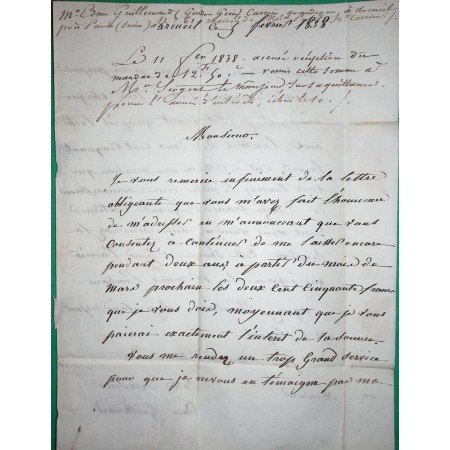 Mr Bon Guillemard (Gendre
près Paris (Seine) Arcueil Ce 9 février 1838
Le 11 fer 1838. accusé réception du
mandat de 12 f 50 c - remis cette somme à
Mr Sergent le même jour, sur sa quittance
pour l'année d'intérêts, échue le 10.
Monsieur.
Je vous remercie infiniment de la lettre
obligeante que vous m'avez fait l'honneur
de m'adresser en m'annonçant que vous
Consentez à continuer de me laisser encore
pendant deux ans, à partir du mois de
mars prochain les deux Cent Cinquante francs
que je vous dois, moyennant que je vous
paierai exactement l'interet de la somme.
Vous me rendez un trop Grand Service
pour que je ne vous en témoigne pas ma